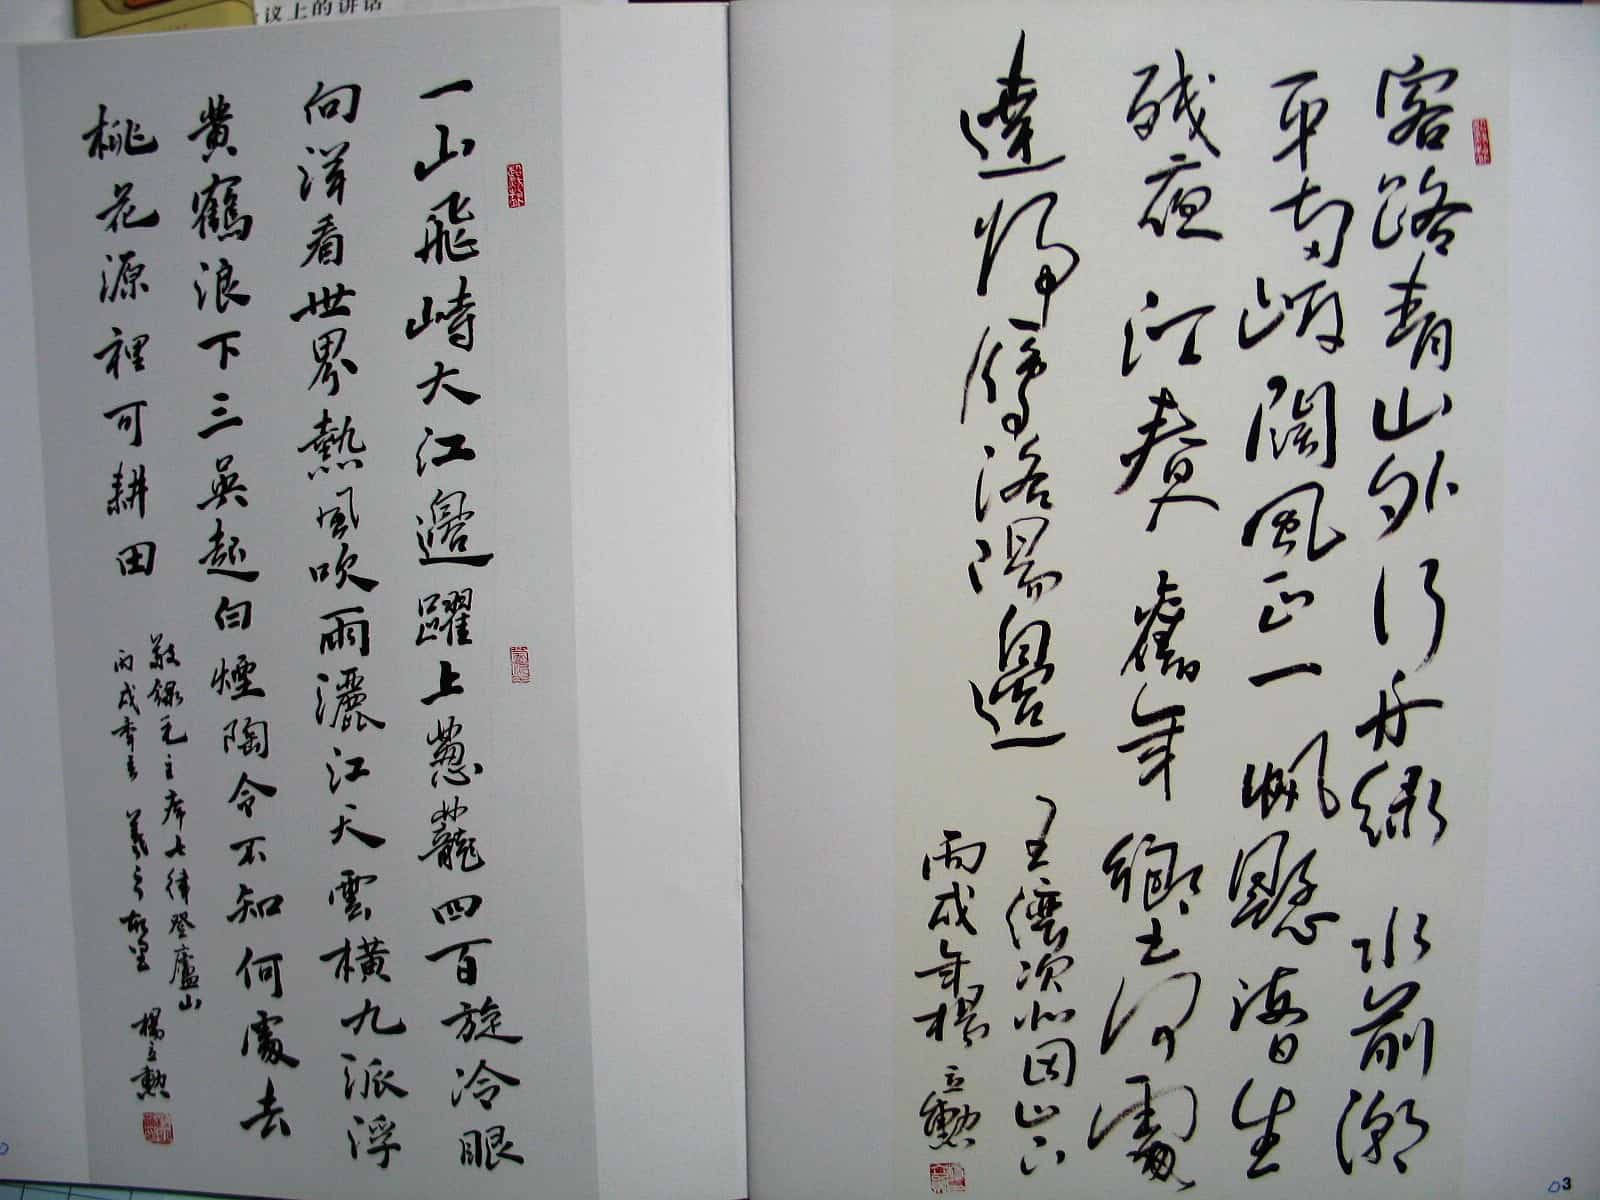 议上的讲话
一山飛峙大江邊躍上蔥蘢四百旋冷眼
向洋看世界熱風吹雨灑江天雲橫九派浮
黃鶴浪下三吳起白煙陶令不知何處去
桃花源裡可耕田
敬錄毛主席七律登廬山
丙戌 楊立勳
客路青山外行舟綠水前潮
平兩岸闊風正一帆懸海日生
殘夜江春入舊年鄉書何處
達歸雁洛陽邊
王灣次北固山下
丙戌年楊立勳
03